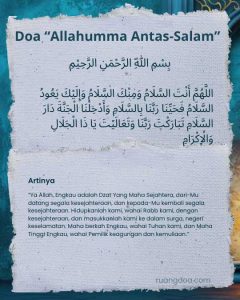 Doa “Allahumma Antas-Salam”
بِسْمِ اللّٰهِ الرَّحْمَنِ الرَّحِيْمِ
اللَّهُمَّ أَنْتَ السَّلَامُ وَمِنْكَ السَّلَامُ وَإِلَيْكَ يَعُودُ
السَّلَامُ فَحَيِّنَا رَبَّنَا بِالسَّلَامِ وَأَدْخِلْنَا الْجَنَّةَ دَارَ
السَّلَامِ تَبَارَكْتَ رَبَّنَا وَتَعَالَيْتَ يَا ذَا الْجَلَالِ
وَالْإِكْرَامِ
Artinya
“Ya Allah, Engkau adalah Dzat Yang Maha Sejahtera, dari-Mu
datang segala kesejahteraan, dan kepada-Mu kembali segala
kesejahteraan. Hidupkanlah kami, wahai Rabb kami, dengan
kesejahteraan, dan masukkanlah kami ke dalam surga, negeri
keselamatan. Maha berkah Engkau, wahai Tuhan kami, dan Maha
Tinggi Engkau, wahai Pemilik keagungan dan kemuliaan.”
ruangdoa.com